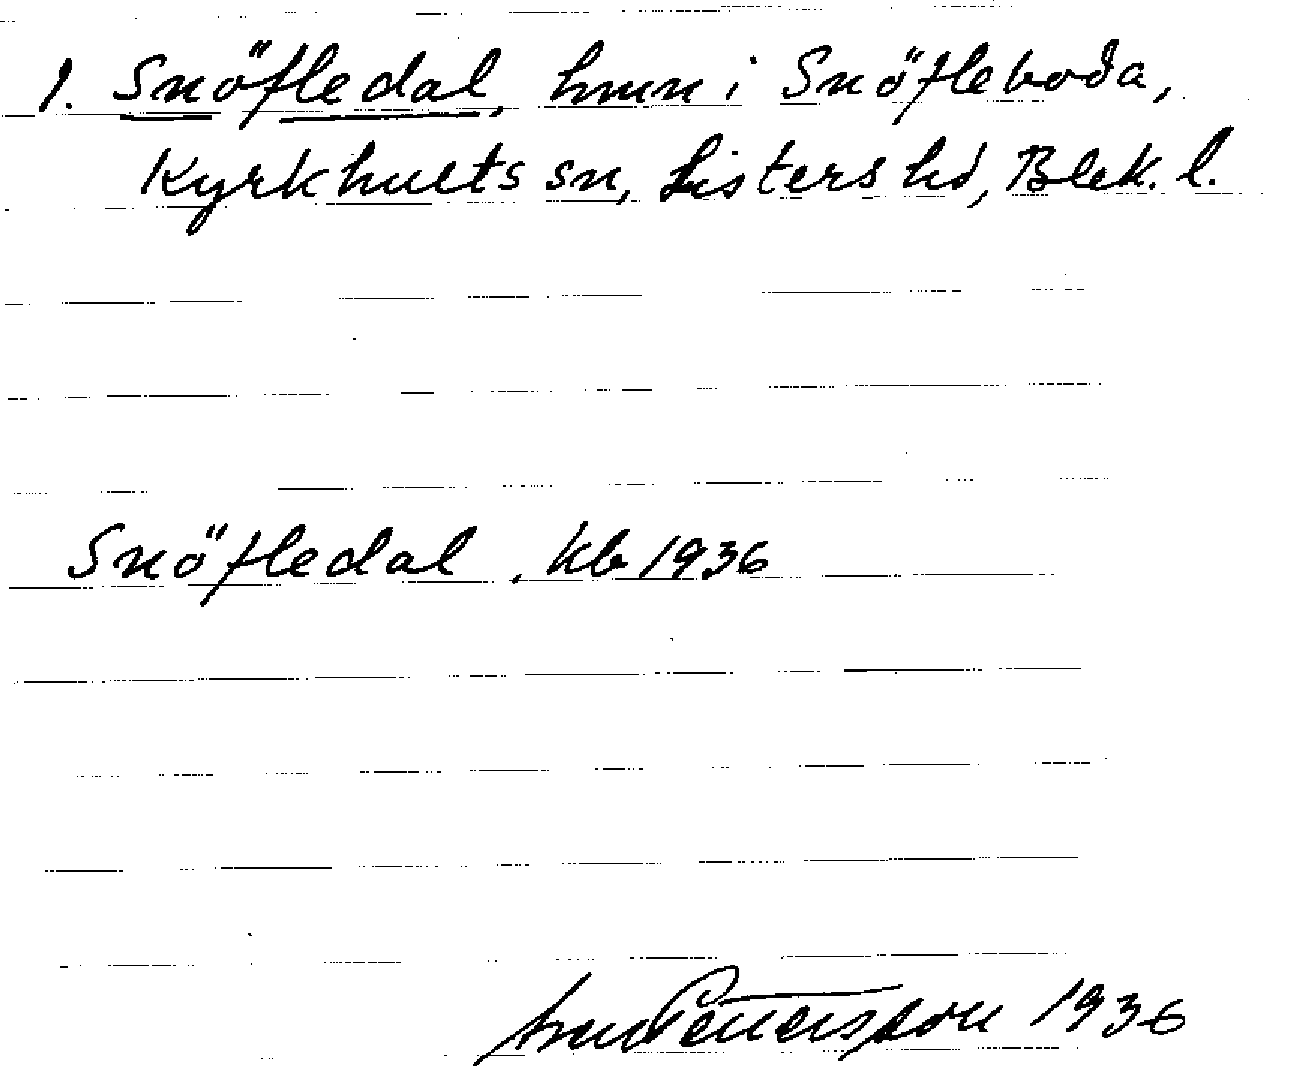 1. Snöfledal, hmn i Snöfleboda,
Kyrkhults sn, Listers hd, Blek. l.
Snöfledal, kb 1936
Pettersson 1936